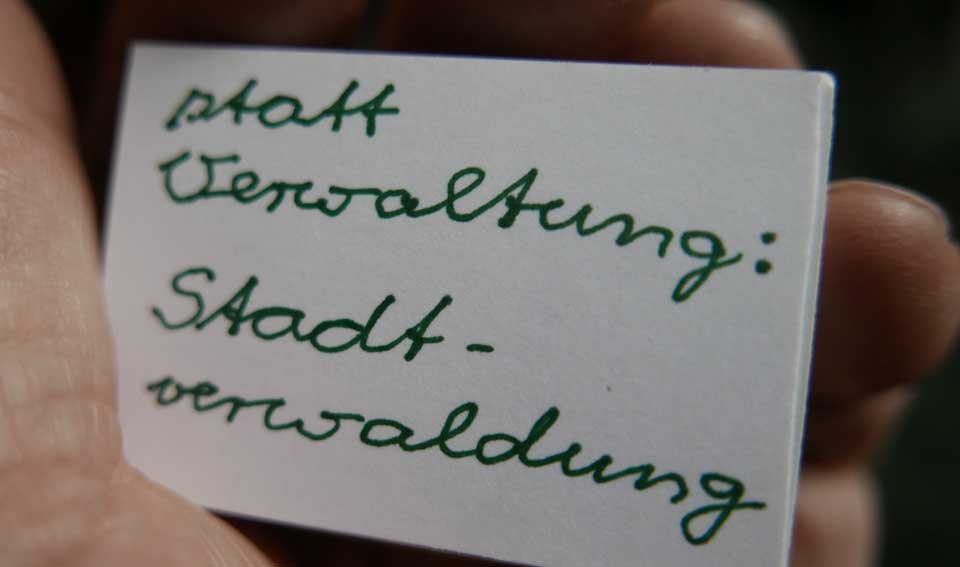 statt
Verwaltung:
Stadt-
verwaldung